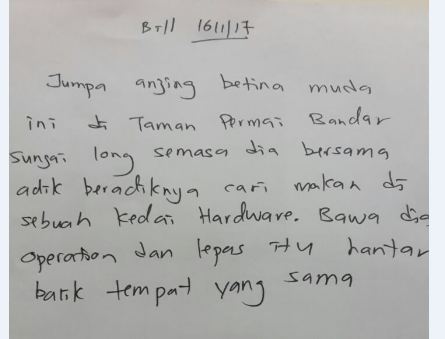 BT11 16/1/17
Jumpa anjing betina muda
ini di Taman Permai Bandar
Sungai long semasa dia bersama
adik beradiknya cari makan di
sebuah Kedai Hardware. Bawa dia
operation dan lepas itu hantar
balik tempat yang sama